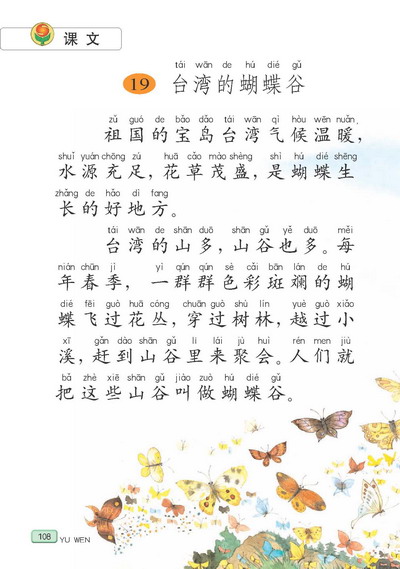 课文
tái wān de hú dié gǔ
19 台湾的蝴蝶谷
zǔ guó de bǎo dǎo tái wān qì hòu wēn nuǎn
祖国的宝岛台湾气候温暖，
shuǐ yuán chōng zú huā cǎo mào shèng shì hú dié shēng
水源充足，花草茂盛，是蝴蝶生
zhǎng de hǎo dì fang
长的好地方。
tái wān de shān duō shān gǔ yě duō měi
台湾的山多，山谷也多。每
nián chūn jì yì qún qún sè cǎi bān lán de hú
年春季，一群群色彩斑斓的蝴
dié fēi guò huā cóng chuān guò shù lín yuè guò xiǎo
蝶飞过花丛，穿过树林，越过小
xī gǎn dào shān gǔ lǐ lái jù huì rén men jiù
溪，赶到山谷里来聚会。人们就
bǎ zhè xiē shān gǔ jiào zuò hú dié gǔ
把这些山谷叫做蝴蝶谷。
108 YU WEN